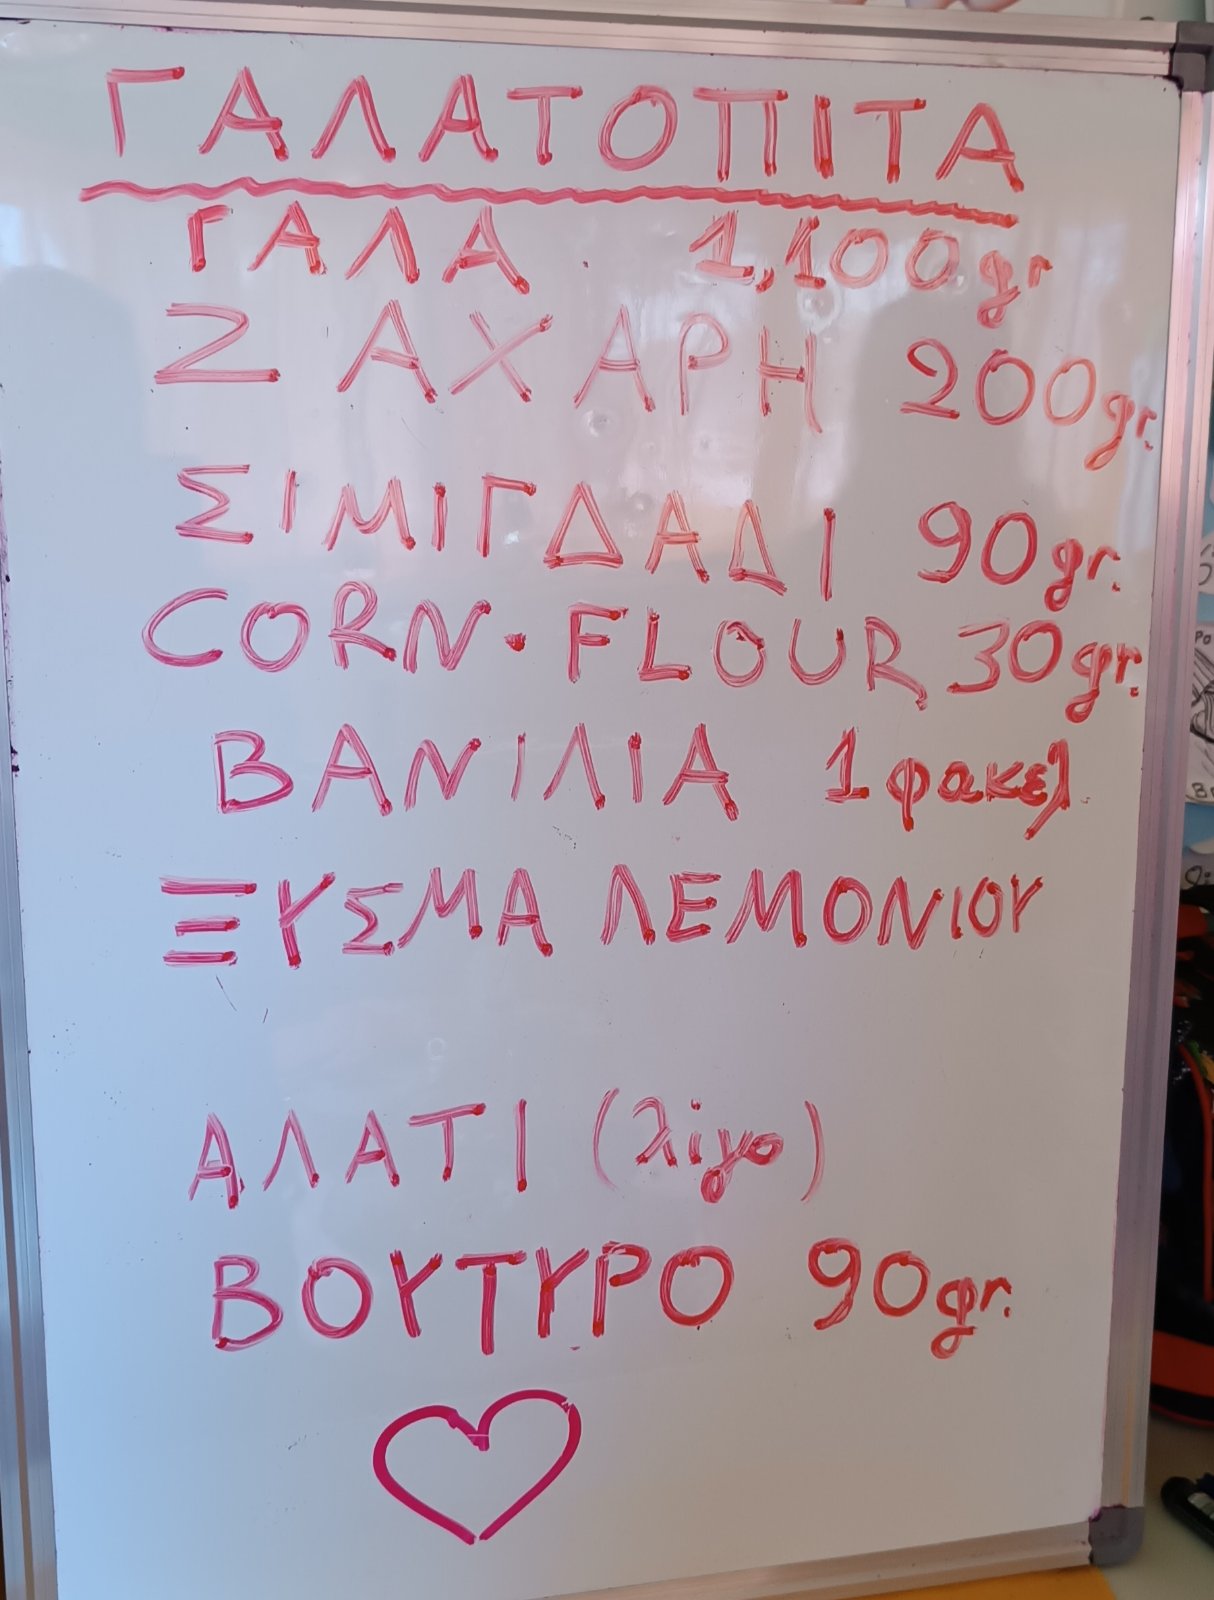 ΓΑΛΑΤΟΠΙΤΑ
ΓΑΛΑ 1,100gr
ΖΑΧΑΡΗ 200gr.
ΣΙΜΙΓΔΑΔΙ 90gr.
CORN·FLOUR 30gr.
ΒΑΝΙΛΙΑ 1 φακελ
ΞΥΣΜΑ ΛΕΜΟΝΙΟΥ
ΑΛΑΤΙ (λίγο)
ΒΟΥΤΥΡΟ 90gr.